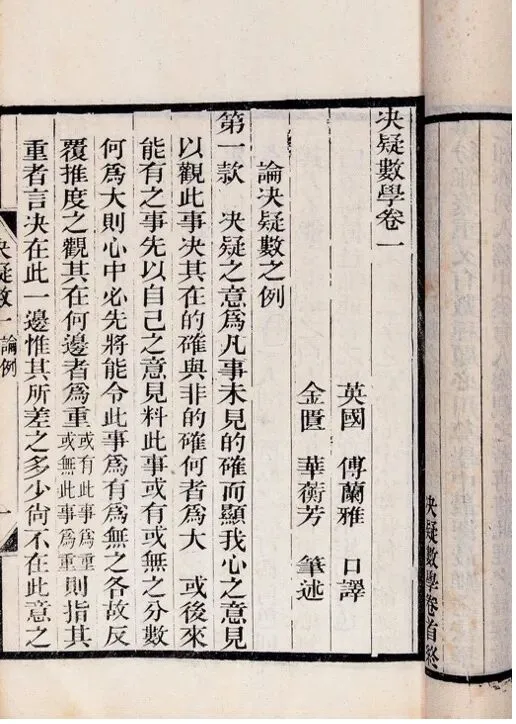 決疑數學卷首終
決疑數學卷一
英國 傅蘭雅 口譯
金匱 華蘅芳 筆述
論決疑數之例
第一款 決疑之意爲凡事未見的確而顯我心之意見
以觀此事決其在的確與非的確何者爲大 或後來
能有之事先以自己之意見料此事或有或無之分數
何爲大則心中必先將能令此事爲有爲無之各故反
覆推度之觀其在何邊者爲重或有此事爲重或無此事爲重則指其
重者言決在此一邊惟其所差之多少尚不在此意之
決疑數一 論例
一